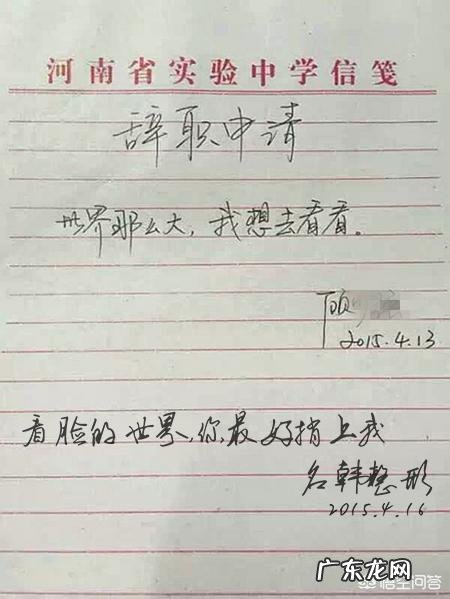 河南省实验中学信笺
辞职申请
世界那么大，我想去看看。
顾
2015.4.13
看脸的世界，你最好捎上我
名韩整形
2015.4.16
悟空问答
广东龙网